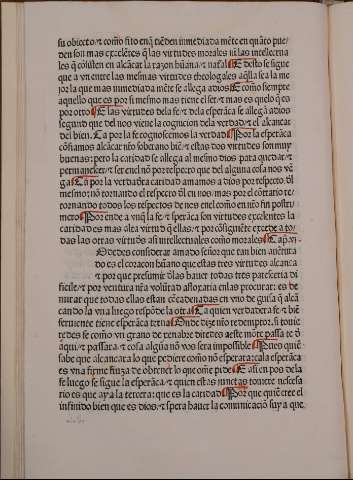 su obiecto ⁊ como fito enq̃ tiẽden inmediada mẽte en quãto pue/
den son mas excelẽtes q̃ las virtudes morales ni las intellectua
les q̃ cõsistẽ en alcãçar la razon hũana ⁊ natal E desto se sigue
que a vn entre las mesmas virtudes theologales aq̃lla sea la me
jor la que mas inmediada mẽte se allega a dios E como siempre
aquello que es por si mesmo mas tiene el ser ⁊ mas es quelo q̃ es
por otro E las virtudes dela fe ⁊ dela esperãça se allegã a dios
segund que del nos viene la cognicion dela verdad ⁊ el alcançar
del bien. Ca por la fe cognoscemos la verdad Por la esperãça
cõfiamos alcãçar nr̃o soberano biẽ ⁊ estas dos virtudes son muy
buenas: pero la caridad se allega al mesmo dios para quedar ⁊
permanescer ⁊ ser enel nõ por respecto que del alguna cosa nos vẽ
ga Ca por la verdadera caridad amamos a dios por respecto. del
mesmo: nõ tornando el respecto del en nos: mas por el cõtrario tor
nando todos los respectos de nos enel como en nr̃o fin postri
mero Por ende a vnq̃ la fe ⁊ sperãça son virtudes excelentes la
caridad es mas alta virtud q̃ ellas: ⁊ por cõsiguiẽte excede a to/
das las otras virtudes asi intellectuales como morales Cap. vi.
Odedes considerar amado señor que tan bien auẽtura
do es el coraçon hũano que estas tres virtudes alcança
⁊ por que presumir õ las hauer todas tres paresceria di
ficile ⁊ por ventura nr̃a volũtad afloxaria enlas procurar: es de
notar que todas ellas estan cõcadenadas en vno de guisa q̃ alcã
çando la vna luego respõde la otra Ca quien verdadera fe ⁊ biẽ
feruente tiene esperãça terna Onde dize nr̃o redemptor. si touie
redes fe como vn grano de xenabe diredes aeste mõte passa te d
aqui. ⁊ passara ⁊ cosa alguna nõ vos sera impossible Pues quiẽ
sabe que alcançara lo que pediere como nõ esperara: ca la esperãça
es vna firme fiuza de obtener lo que ome pide E asi en pos dela
fe luego se sigue la esperãça: ⁊ quien estas touiere necessa
rio es que aya la tercera: que es la caridad Por que quiẽ cree el
infinido bien que es dios: ⁊ spera hauer la comunicaciõ suya que